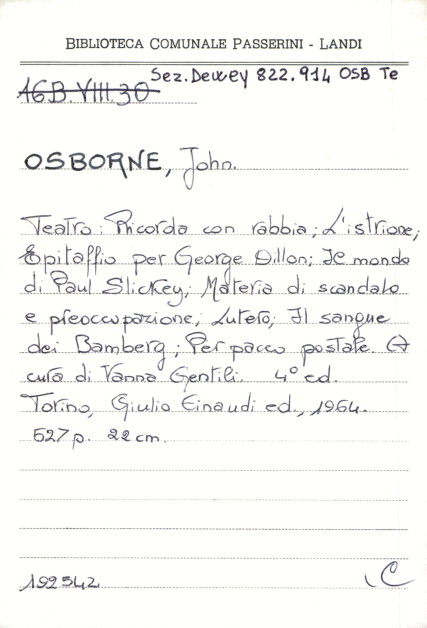 BIBLIOTECA COMUNALE PASSERINI - LANDI
Sez. Dewey 822.914 OSB Te
16B.VIII.30
OSBORNE, John.
Teatro: Ricorda con rabbia; L'istrione;
Epitaffio per George Dillon; Il mondo
di Paul Slickey; Materia di scandalo
e preoccupazione; Lutero; Il sangue
dei Bamberg; Per pacco postale. A
cura di Vanna Gentili. 4° ed.
Torino, Giulio Einaudi ed., 1964.
527 p. 22 cm.
192542
C